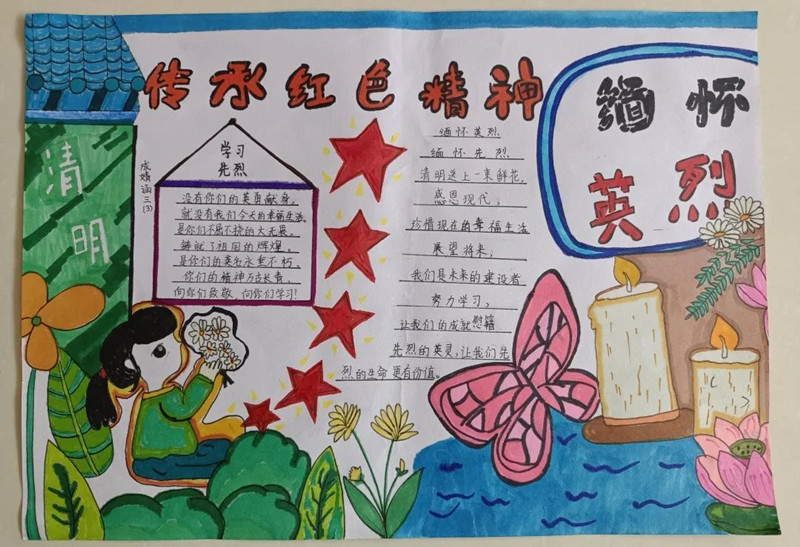 传承红色精神
缅怀
英烈
清明
成婧涵三(3)
学习
先烈
没有你们的英勇献身,
就没有我们今天的幸福生活,
是你们不屈不挠的大无畏,
铸就了祖国的辉煌,
是你们的英名永垂不朽,
你们的精神万古长青,
向你们致敬,向你们学习!
缅怀英烈
缅怀先烈
清明送上一束鲜花,
感恩现代,
珍惜现在的幸福生活
展望将来,
我们是未来的建设者
努力学习,
让我们的成就慰籍
先烈的英灵,让我们先
烈的生命更有价值。